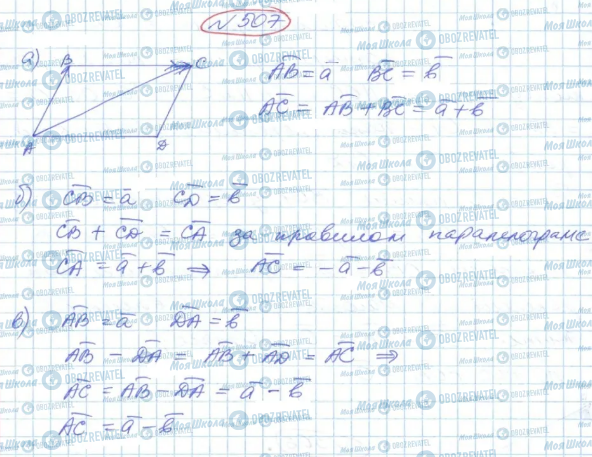 №507
а) B C A D
AB̅ = a̅ BC̅ = b̅
AC̅ = AB̅ + BC̅ = a̅ + b̅
б) CB̅ = a̅ CD̅ = b̅
CB̅ + CD̅ = CA̅ за правилом паралелограмс
CA̅ = a̅ + b̅ ⇒ AC̅ = -a̅ - b̅
в) AB̅ = a̅ DA̅ = b̅
AB̅ - DA̅ = AB̅ + AD̅ = AC̅ ⇒
AC̅ = AB̅ - DA̅ = a̅ - b̅
AC̅ = a̅ - b̅
Моя Школа
OBOZREVATEL